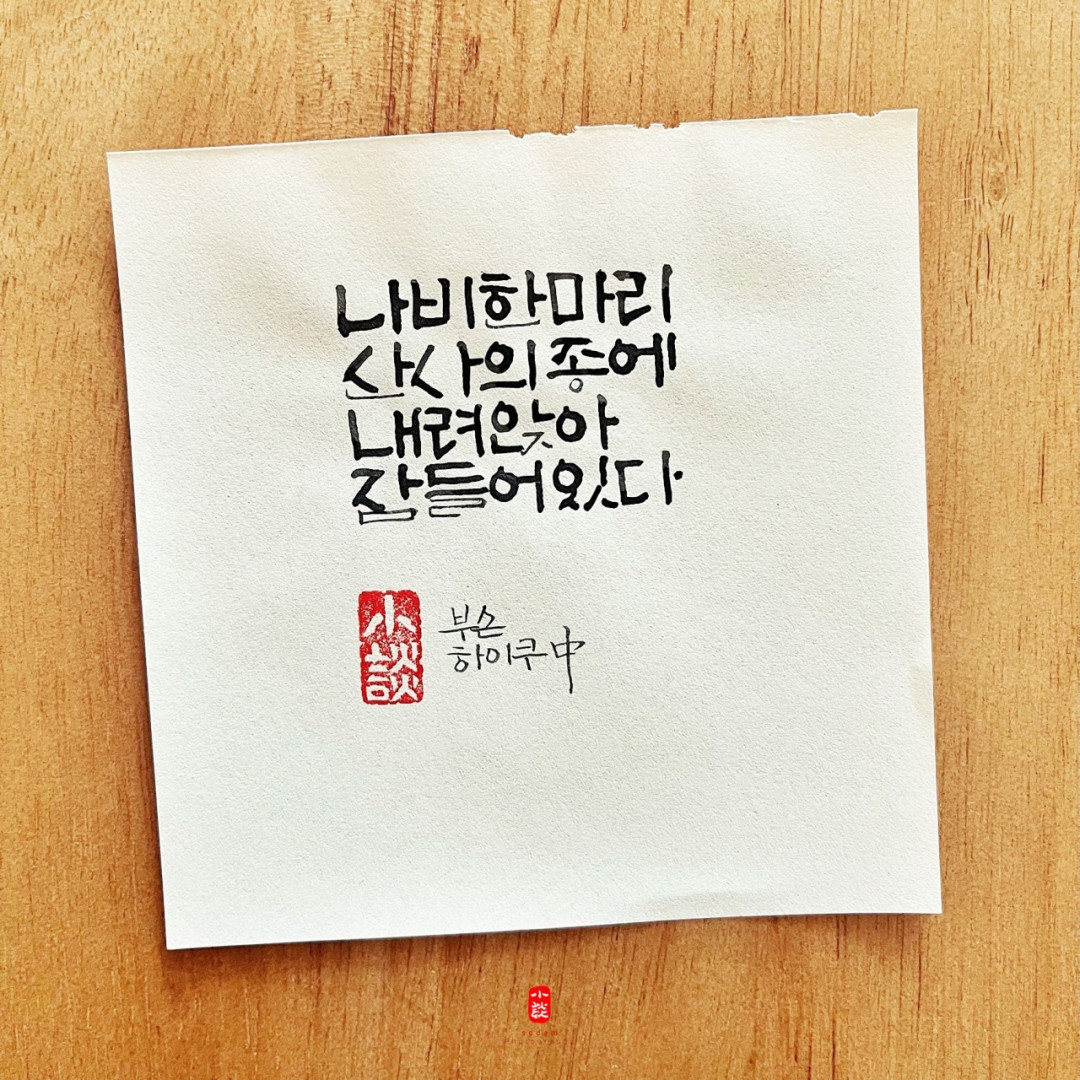 나비한마리
산사의종에
내려앉아
잠들어있다.
小談
부손
하이쿠中
小談